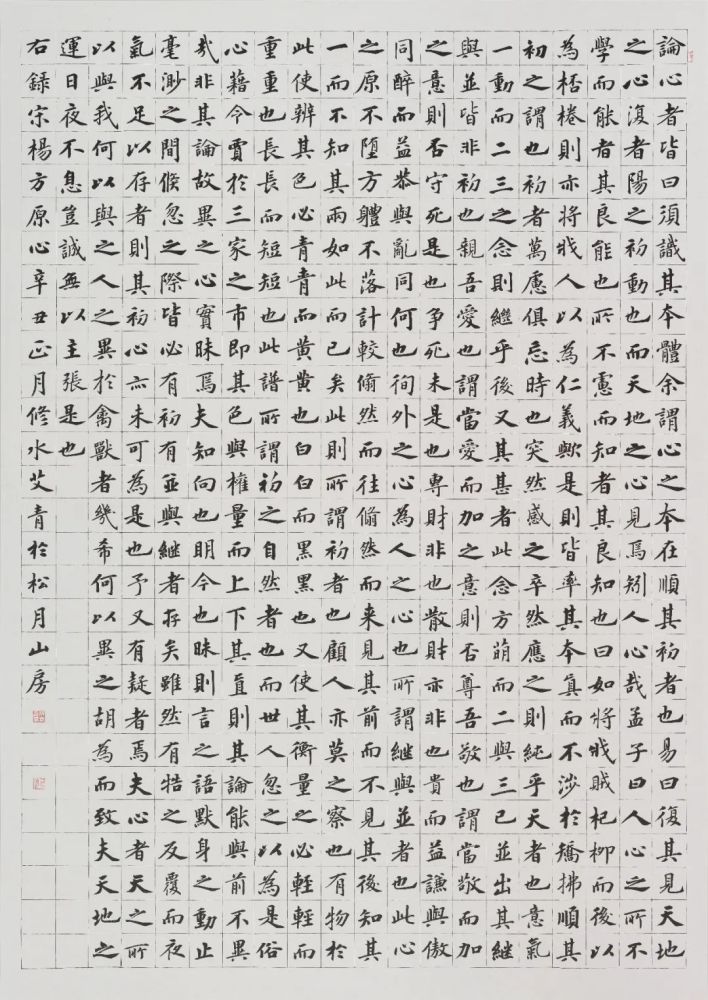 論心者皆曰須識其本體余謂心之本在順其初者也易曰復其見天地
之心復者陽之初動也而天地之心見焉矧人心哉孟子曰人心之所不
學而能者其良能也所不慮而知者其良知也曰如將戕賊杞柳而後以
為桮棬則亦將戕人以為仁義歟是則皆率其本真而不涉於矯拂順其
初之謂也初者萬慮俱忘時也突然感之卒然應之則純乎天者也意氣
一動而二三之念則繼乎後又其甚者此念方萌而二與三已並出其繼
與並皆非初也親吾愛也謂當愛而加之意則否尊吾敬也謂當敬而加
之意則否守死是也爭死未是也專財非也散財亦非也貴而益謙與傲
同醉而益恭與亂同何也徇外之心為人之心也所謂繼與並者也此心
之原不墮方體不落計較翛然而往翛然而来見其前而不見其後知其
一而不知其兩如此而已矣此則所謂初者也顧人亦莫之察也有物於
此使辨其色必青青而黃黃也白白而黑黑也又使其衡量之必輕輕而
重重也長長而短短也此譜所謂初之自然者也而世人忽之以為是俗
心藉今賈於三家之市即其色與權量而上下其直則其論能與前不異
哉非其論故異之心實昧焉夫知向也明今也昧則言之語默身之動止
毫渺之間倏忽之際皆必有初有並與繼者存矣雖然有牿之反覆而夜
氣不足以存者則其初心亦未可為是也予又有疑者焉夫心者天之所
以與我何以與之人之異於禽獸者幾希何以異之胡為而致夫天地之
運日夜不息豈誠無以主張是也
右録宋楊方原心辛丑正月修水艾青於松月山房